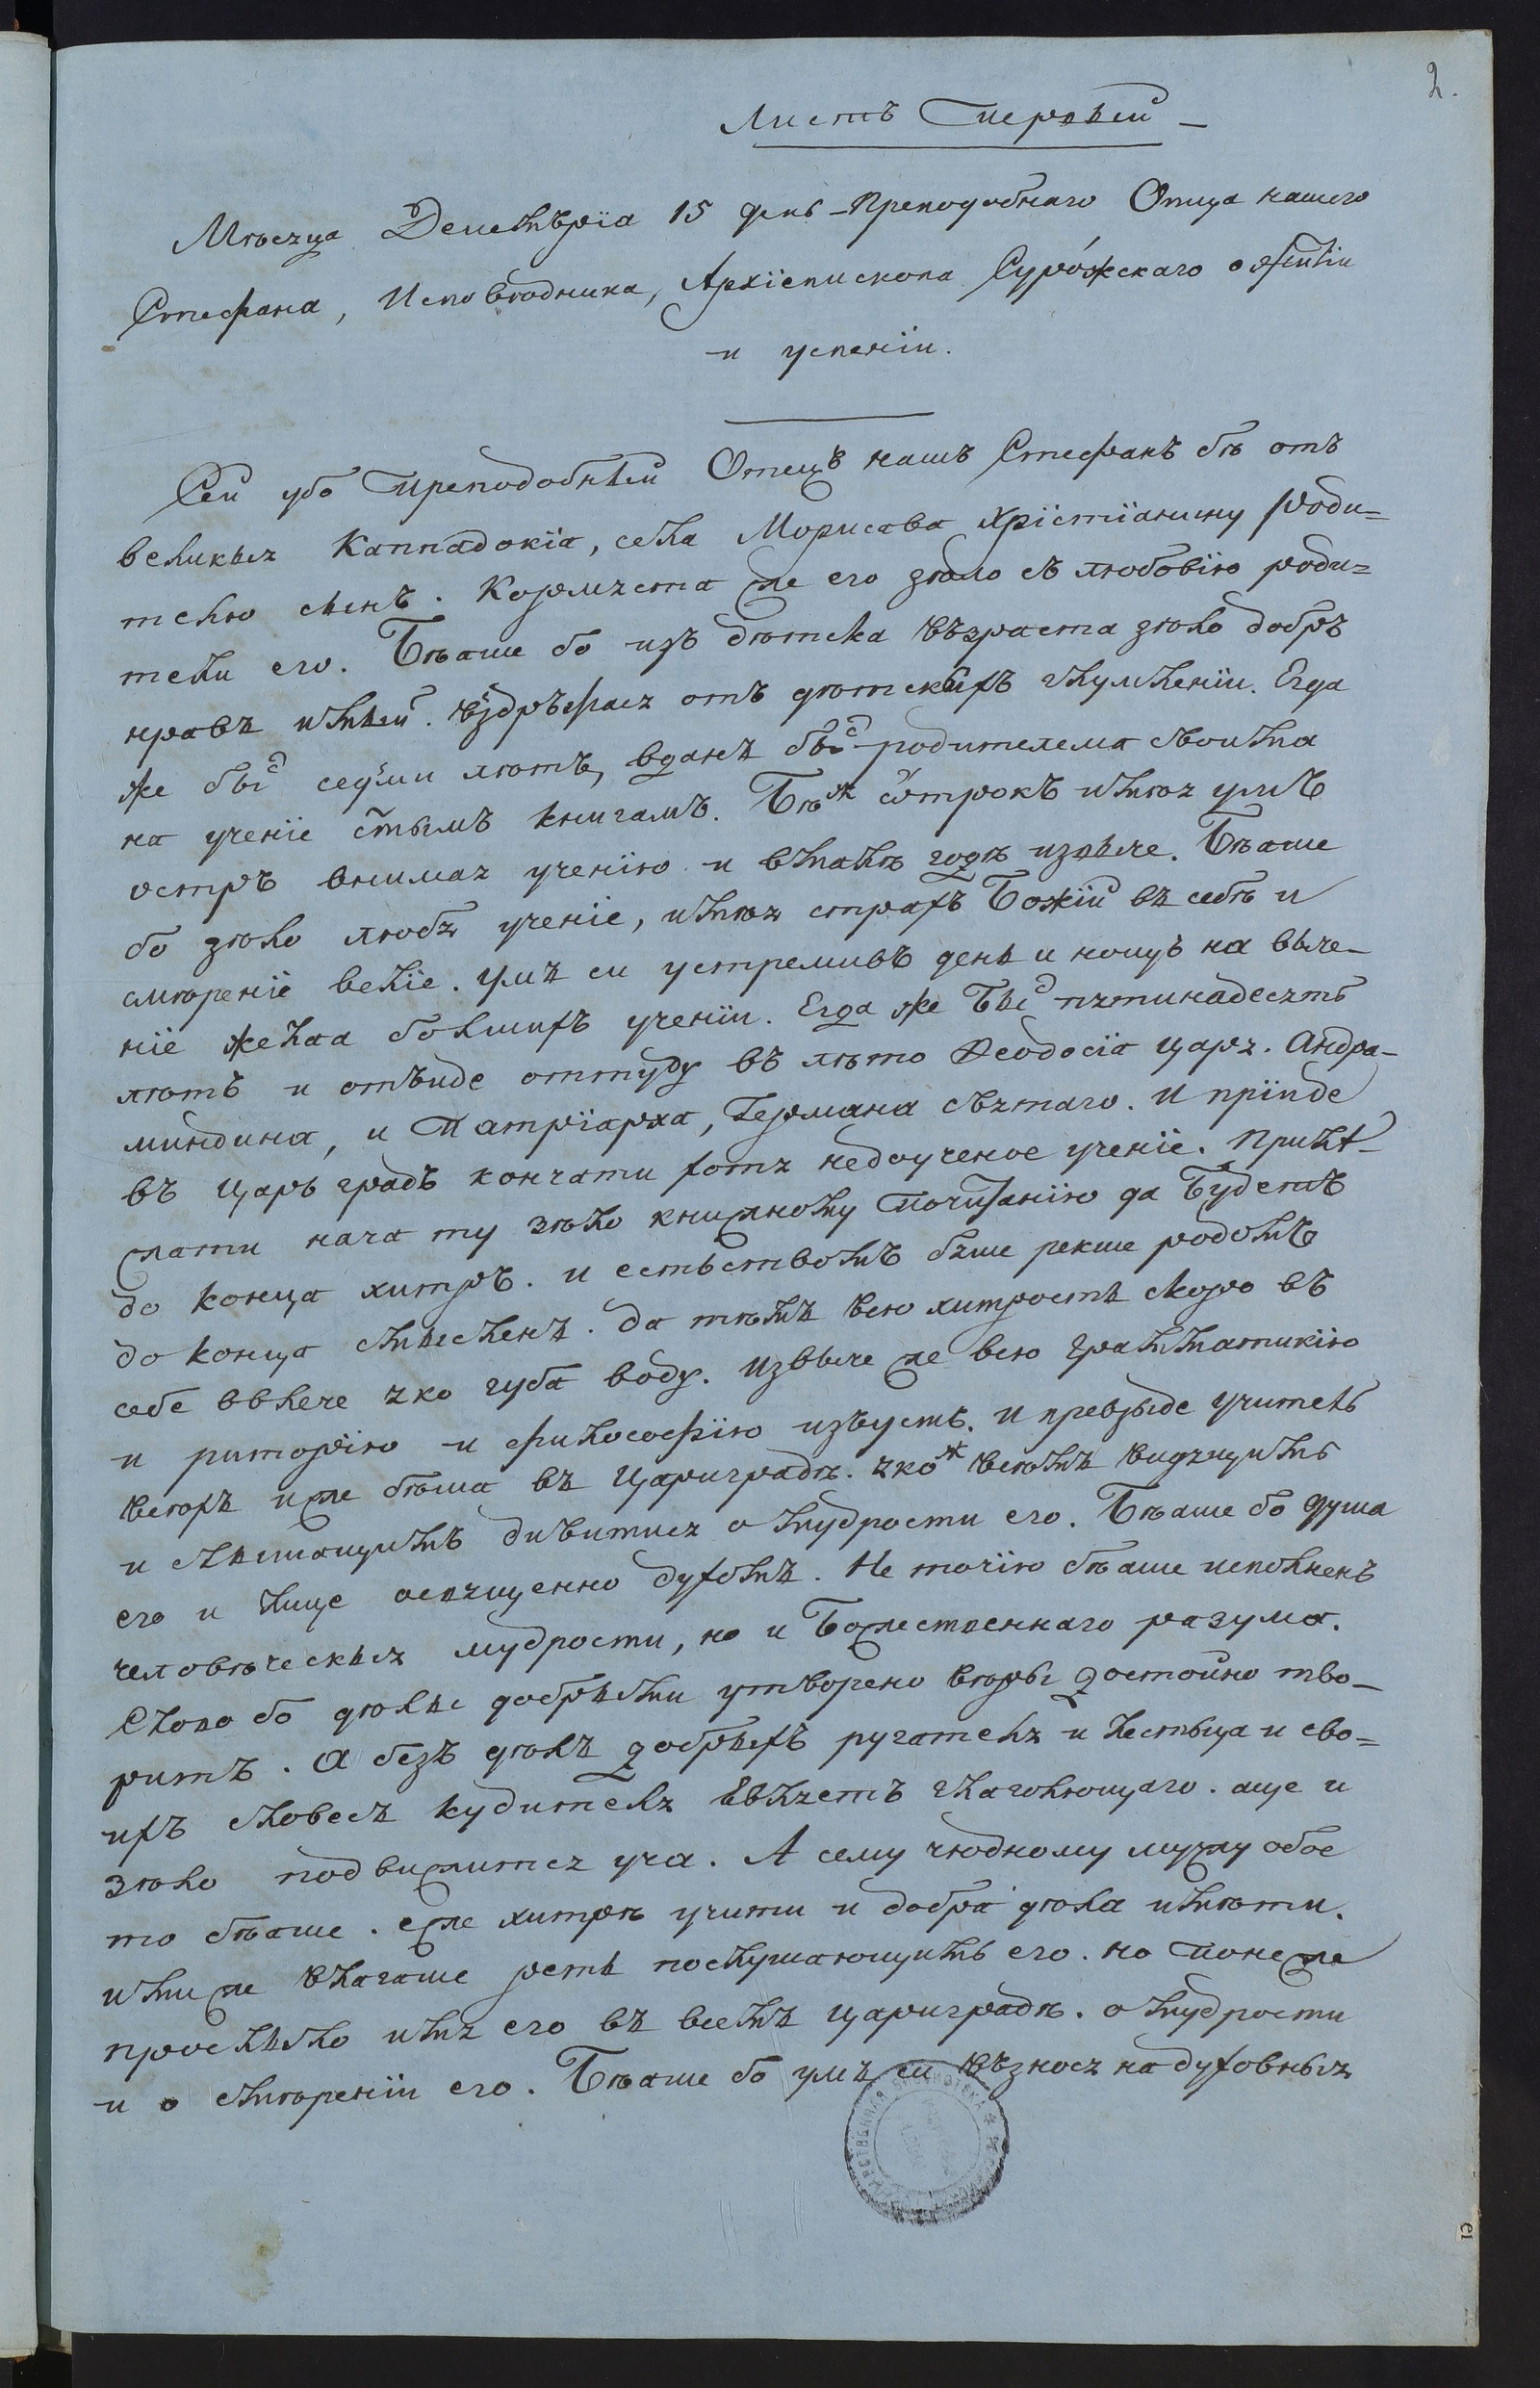 2.
Листъ Первый
Мѣсяца Декемврїа 15 день – Преподобнаго Отца нашего
Стефана, Исповѣдника, Архїепископа Суро́жскаго о житїи
и успенїи.
Сеи убо Преподобный Отецъ нашъ Стефанъ бѣ отъ
великыя Каппадокїа, села Морисава Хрїстїанину роди=
телю сынъ. Кормяста же его зѣло съ любовїю роди=
тели его. Бѣаше бо изъ дѣтска възраста зѣло добръ
нравъ имый. въздръжася отъ дѣтскыхъ глумленїи. Егда
же быс седми лѣтъ, вданъ быс родителема своима
на ученїе стымъ книгамъ. Бѣж отрокъ имѣя умъ
остръ внимая ученїю и вмалѣ годѣ извыче. Бѣаше
бо зѣло любя ученїе, имѣя страхъ Божїй въ себѣ и
смѣренїе велїе. умъ си устремивъ день и нощь на выче-
нїе желаа болшихъ ученїи. Егда же быс пятинадесять
лѣтъ и отъиде оттуду въ лѣто Ѳеодосїа царя. Андра-
миндина, и Патрїарха, Германа святаго. И прїиде
въ Царь градъ кончати хотя недоученое ученїе. Прилѣ-
жати нача ту зѣло книжному почитанїю да будетъ
до конца хитръ. и естьствомъ бяше рекше родомъ
до конца смысленъ. да тѣмъ всю хитрость скоро въ
себе ввлече яко губа воду. извыче же всю грамматикїю
и риторїю и философїю изъусть. и превзыде учитель
всѣхъ иже бѣша въ Цариградѣ. якож всѣмъ видящимъ
и слышащимъ дивитися о мудрости его. Бѣаше бо душа
его и лице освящено духомъ. Не точїю бѣаше исполненъ
человѣческыя мудрости, но и Божественнаго разума.
Слово бо дѣлы добрыми утворено вѣры достойно тво-
ритъ. а безъ дѣлъ добрыхъ ругателя и лестьца и сво=
ихъ словесъ кудителя являетъ глаголющаго. аще и
зѣло подвижится уча. А сему чюдному мужу обое
то бѣаше. еже хитрѣ учити и добра дѣла имѣти.
имиже влагаше рсть послушающимъ его. но понеже
прослыло имя его въ всемъ цариградѣ. о мудрости
и о смѣренїи его. Бѣаше бо умъ си възнося на духовныя